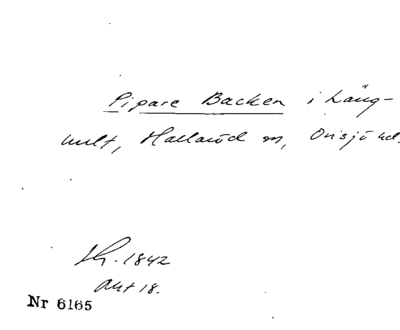 Pipare Backen i Läng-
hult, Hallaröd sn, Onsjö hd.
Skr. 1842
Akt 18.
Nr 6165